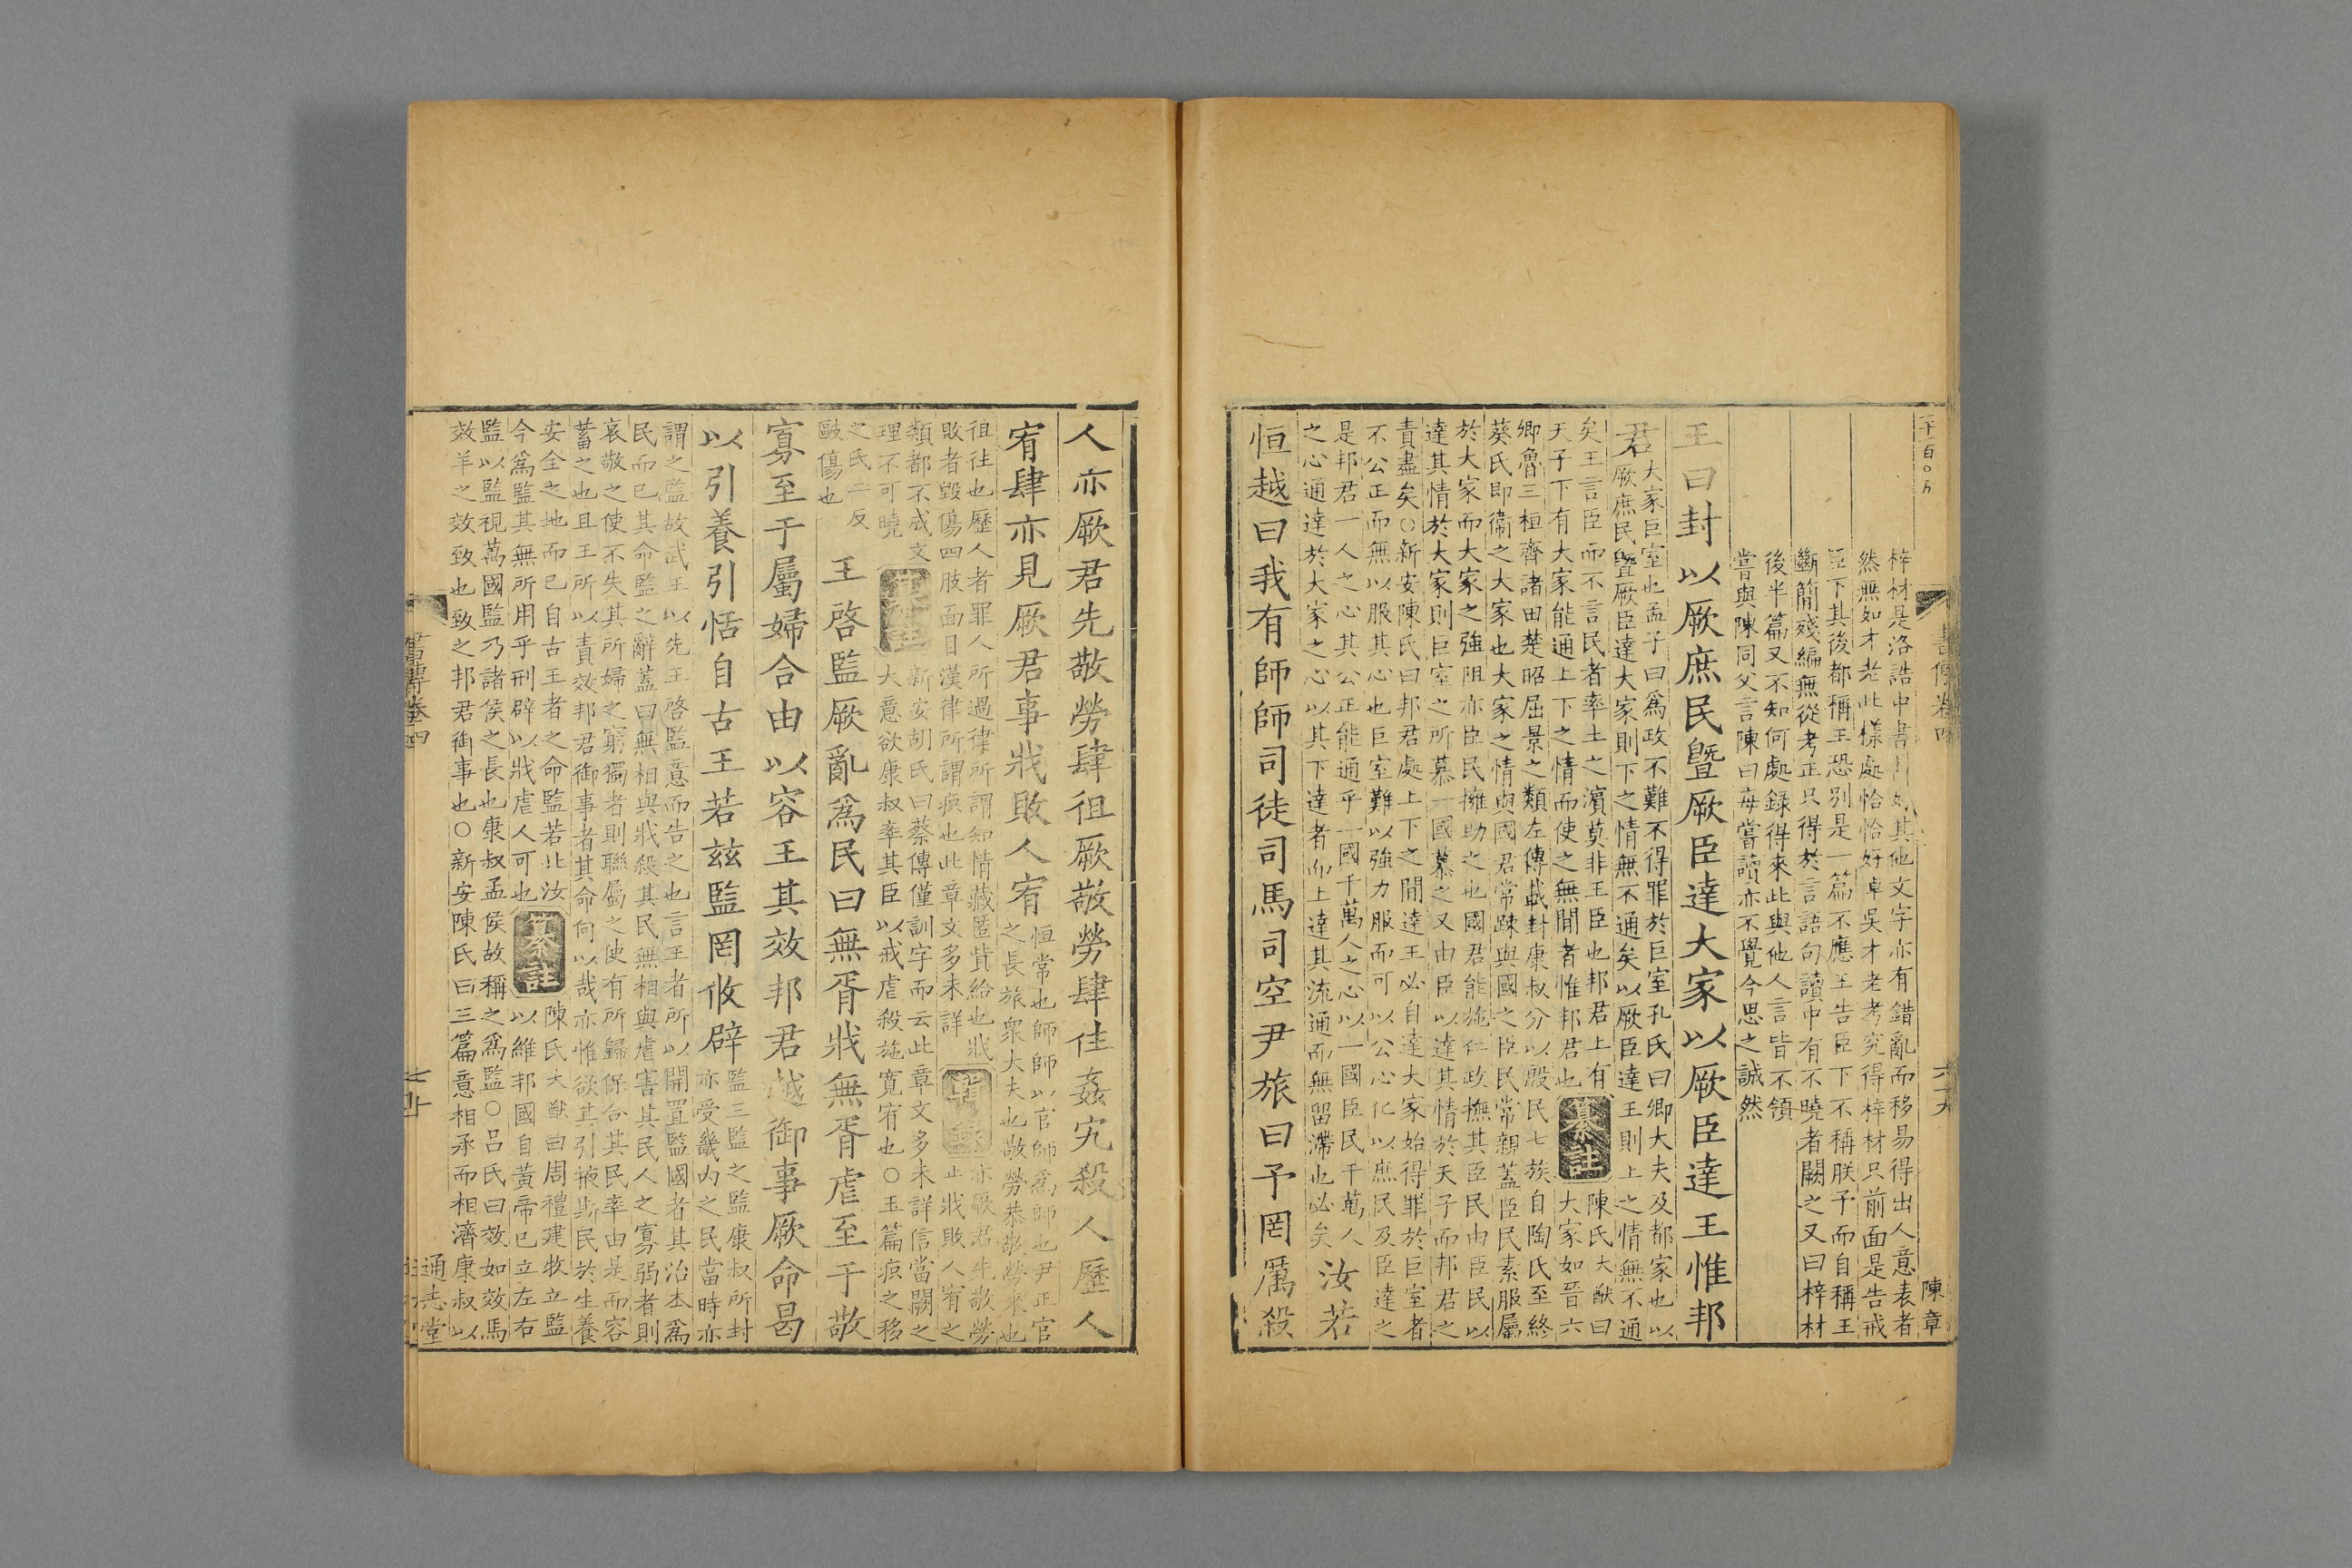 書傳卷四
六十九
陳章
梓材是洛誥中書甚好其他文字亦有錯亂而移易得出人意表者
然無如才老此樣處恰恰好卓吳才老考究得梓材只前面是告戒
臣下其後都稱王恐別是一篇不應王告臣下不稱朕予而自稱王
斷簡殘編無從考正只得於言語句讀中有不曉者闕之又曰梓材
後半篇又不知何處録得來此與他人言皆不領
嘗與陳同父言陳曰每嘗讀亦不覺今思之誠然
王曰封以厥庶民曁厥臣達大家以厥臣達王惟邦
君
大家巨室也孟子曰爲政不難不得罪於巨室孔氏曰卿大夫及都家也以
厥庶民曁厥臣達大家則下之情無不通矣以厥臣達王則上之情無不通
矣王言臣而不言民者率土之濱莫非王臣也邦君上有
天子下有大家能通上下之情而使之無間者惟邦君也
纂註
陳氏大猷曰
大家如晉六
卿魯三桓齊諸田楚昭屈景之類左傳載封康叔分以殷民七族自陶氏至終
葵氏即衛之大家也大家之情與國君常踈與國之臣民常親蓋臣民素服屬
於大家而大家之強阻亦臣民擁助之也國君能施仁政撫其臣民由臣民以
達其情於大家則巨室之所慕一國慕之又由臣以達其情於天子而邦君之
責盡矣○新安陳氏曰邦君處上下之間達王必自達大家始得罪於巨室者
不公正而無以服其心也巨室難以強力服而可以公心化以庶民及臣達之
是邦君一人之心其公正能通乎一國千萬人之心以一國臣民千萬人
之心通達於大家之心以其下達者而上達其流通而無留滯也必矣
汝若
恒越曰我有師師司徒司馬司空尹旅曰予罔厲殺
人亦厥君先敬勞肆徂厥敬勞肆往姦宄殺人歷人
宥肆亦見厥君事戕敗人宥
恒常也師師以官師爲師也尹正官
之長旅衆大夫也敬勞恭敬勞來也
徂往也歷人者罪人所過律所謂知情藏匿貲給也戕
敗者毀傷四肢面目漢律所謂疻也此章文多未詳
亦厥君先敬勞
止戕敗人宥之
類都不成文
理不可曉
纂註
新安胡氏曰蔡傳僅訓字而云此章文多未詳信當闕之
大意欲康叔率其臣以戒虐殺施寛宥也○玉篇疻之移
之氏二反
毆傷也
王啓監厥亂爲民曰無胥戕無胥虐至于敬
寡至于屬婦合由以容王其效邦君越御事厥命曷
以引養引恬自古王若玆監罔攸辟
監三監之監康叔所封
亦受畿内之民當時亦
謂之監故武王以先王啓監意而告之也言王者所以開置監國者其治本爲
民而已其命監之辭蓋曰無相與戕殺其民無相與虐害其民人之寡弱者則
哀敬之使不失其所婦之窮獨者則聯屬之使有所歸保合其民率由是而容
蓄之也且王所以責效邦君御事者其命何以哉亦惟欲其引掖斯民於生養
安全之地而已自古王者之命監若此汝
今爲監其無所用乎刑辟以戕虐人可也
纂註
陳氏大猷曰周禮建牧立監
以維邦國自黃帝已立左右
監以監視萬國監乃諸侯之長也康叔孟侯故稱之爲監○呂氏曰效如效馬
效羊之效致也致之邦君御事也○新安陳氏曰三篇意相承而相濟康叔以
通志堂